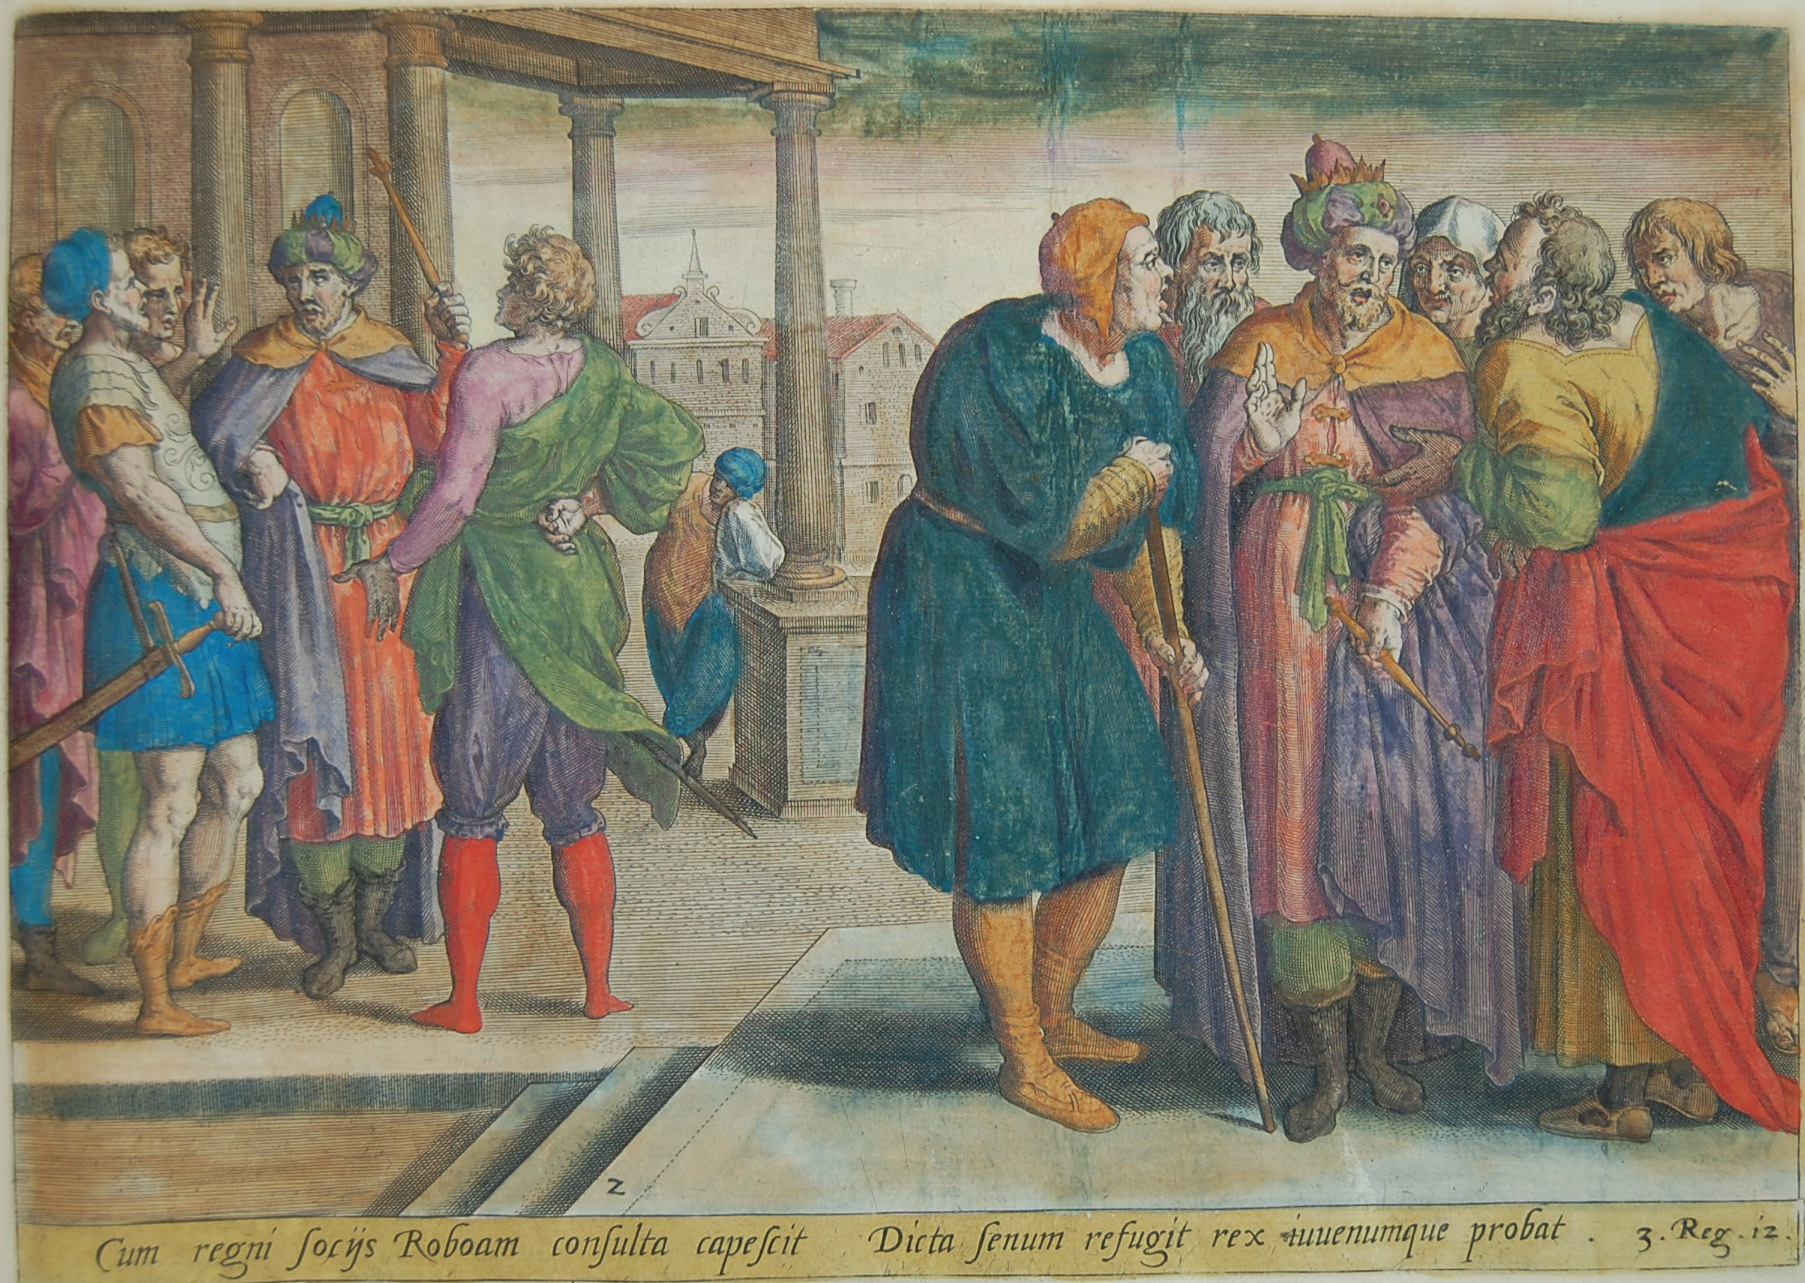 2
Cum regni ſocijs Roboam conſulta capeſcit Dicta ſenum refugit rex iuuenumque probat . 3. Reg. 12.